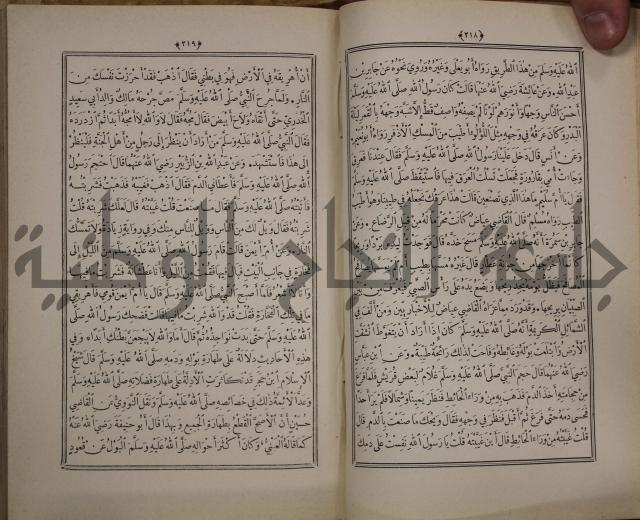 ﴿٢١٨﴾
الله عليه وسلم من هذا الطريق رواه أبو يعلى وغيره وروي نحوه عن جابر بن
عبد الله وعن عائشة رضي الله عنها قالت كان رسول الله صلى الله عليه وسلم
أحسن الناس وجها وأنورهم لونا لم يصفه واصف قط إلا شبه وجهه بالقمر ليلة
البدر وكان عرقه في وجهه مثل اللؤلؤ أطيب من المسك الأذفر رواه أبو نعيم
وعن أنس قال دخل علينا رسول الله صلى الله عليه وسلم فقال عندنا فعرق
وجاءت أمي بقارورة فجعلت تسلت العرق فيها فاستيقظ صلى الله عليه وسلم
فقال يا أم سليم ما هذا الذي تصنعين قالت هذا عرقك نجعله في طيبنا وهو أطيب
الطيب رواه مسلم قال القاضي عياض كانت محرما له من قبل الرضاع وعن
جابر بن سمرة أنه صلى الله عليه وسلم مسح خده قال فوجدت ليده بردا وريحا
كأنما أخرجها من جونة عطار قال غيره مسها بطيب أو لم يمسها يصافح
المصافح فيظل يومه يجد ريحها ويضع يده على رأس الصبي فيعرف من بين
الصبيان بريحها وقد ورد مما عزاه القاضي عياض للأخباريين ومن ألف في
الشمائل الكريمة أنه صلى الله عليه وسلم كان إذا أراد أن يتغوط انشقت
الأرض وابتلعت بوله وغائطه وفاحت لذلك رائحة طيبة وعن ابن عباس
رضي الله عنهما قال حجم النبي صلى الله عليه وسلم غلام لبعض قريش فلما فرغ
من حجامته أخذ الدم فذهب به من وراء الحائط فنظر يمينا وشمالا فلم ير أحدا
فحسى دمه حتى فرغ ثم أقبل فنظر في وجهه فقال ويحك ما صنعت بالدم قال
قلت غيبته من وراء الحائط قال أين غيبته قلت يا رسول الله نفست على دمك
﴿٢١٩﴾
أن أهريقه في الأرض فهو في بطني فقال اذهب فقد أحرزت نفسك من
النار ولما جرح النبي صلى الله عليه وسلم مص جرحه مالك والد أبي سعيد
الخدري حتى أنقاه ولاح أبيض فقال مجه فقال لا والله لا أمجه أبدا ثم ازدرده
فقال النبي صلى الله عليه وسلم من أراد أن ينظر إلى رجل من أهل الجنة فلينظر
إلى هذا فاستشهد وعن عبد الله بن الزبير رضي الله عنهما قال احتجم رسول
الله صلى الله عليه وسلم فأعطاني الدم فقال اذهب فغيبه فذهبت فشربته
فأتيته صلى الله عليه وسلم فقال ما صنعت قلت غيبته قال لعلك شربته قلت
شربته فقال ويل لك من الناس وويل للناس منك وفي رواية زيادة ولا تمسك
النار وعن أم أيمن قالت قام رسول الله صلى الله عليه وسلم من الليل إلى
فخارة في جانب البيت فبال فيها فقمت من الليل وأنا عطشانة فشربت ما فيها
وأنا لا أشعر فلما أصبح النبي صلى الله عليه وسلم قال يا أم أيمن قومي فأهريقي
ما في تلك الفخارة فقلت قد والله شربت ما فيها قالت فضحك رسول الله صلى
الله عليه وسلم حتى بدت نواجذه ثم قال أما والله لا ييجعن بطنك أبدا وفي
هذه الأحاديث دلالة على طهارة بوله ودمه صلى الله عليه وسلم قال شيخ
الإسلام ابن حجر قد تكاثرت الأدلة على طهارة فضلاته صلى الله عليه وسلم
وعد الأئمة ذلك في خصائصه صلى الله عليه وسلم ونقل النووي عن القاضي
حسين أن الأصح القطع بطهارة الجميع وبهذا قال أبو حنيفة رضي الله عنه
كما قاله العيني وكان أكثر أحواله صلى الله عليه وسلم البول عن قعود
جامعة النجاح الوطنية